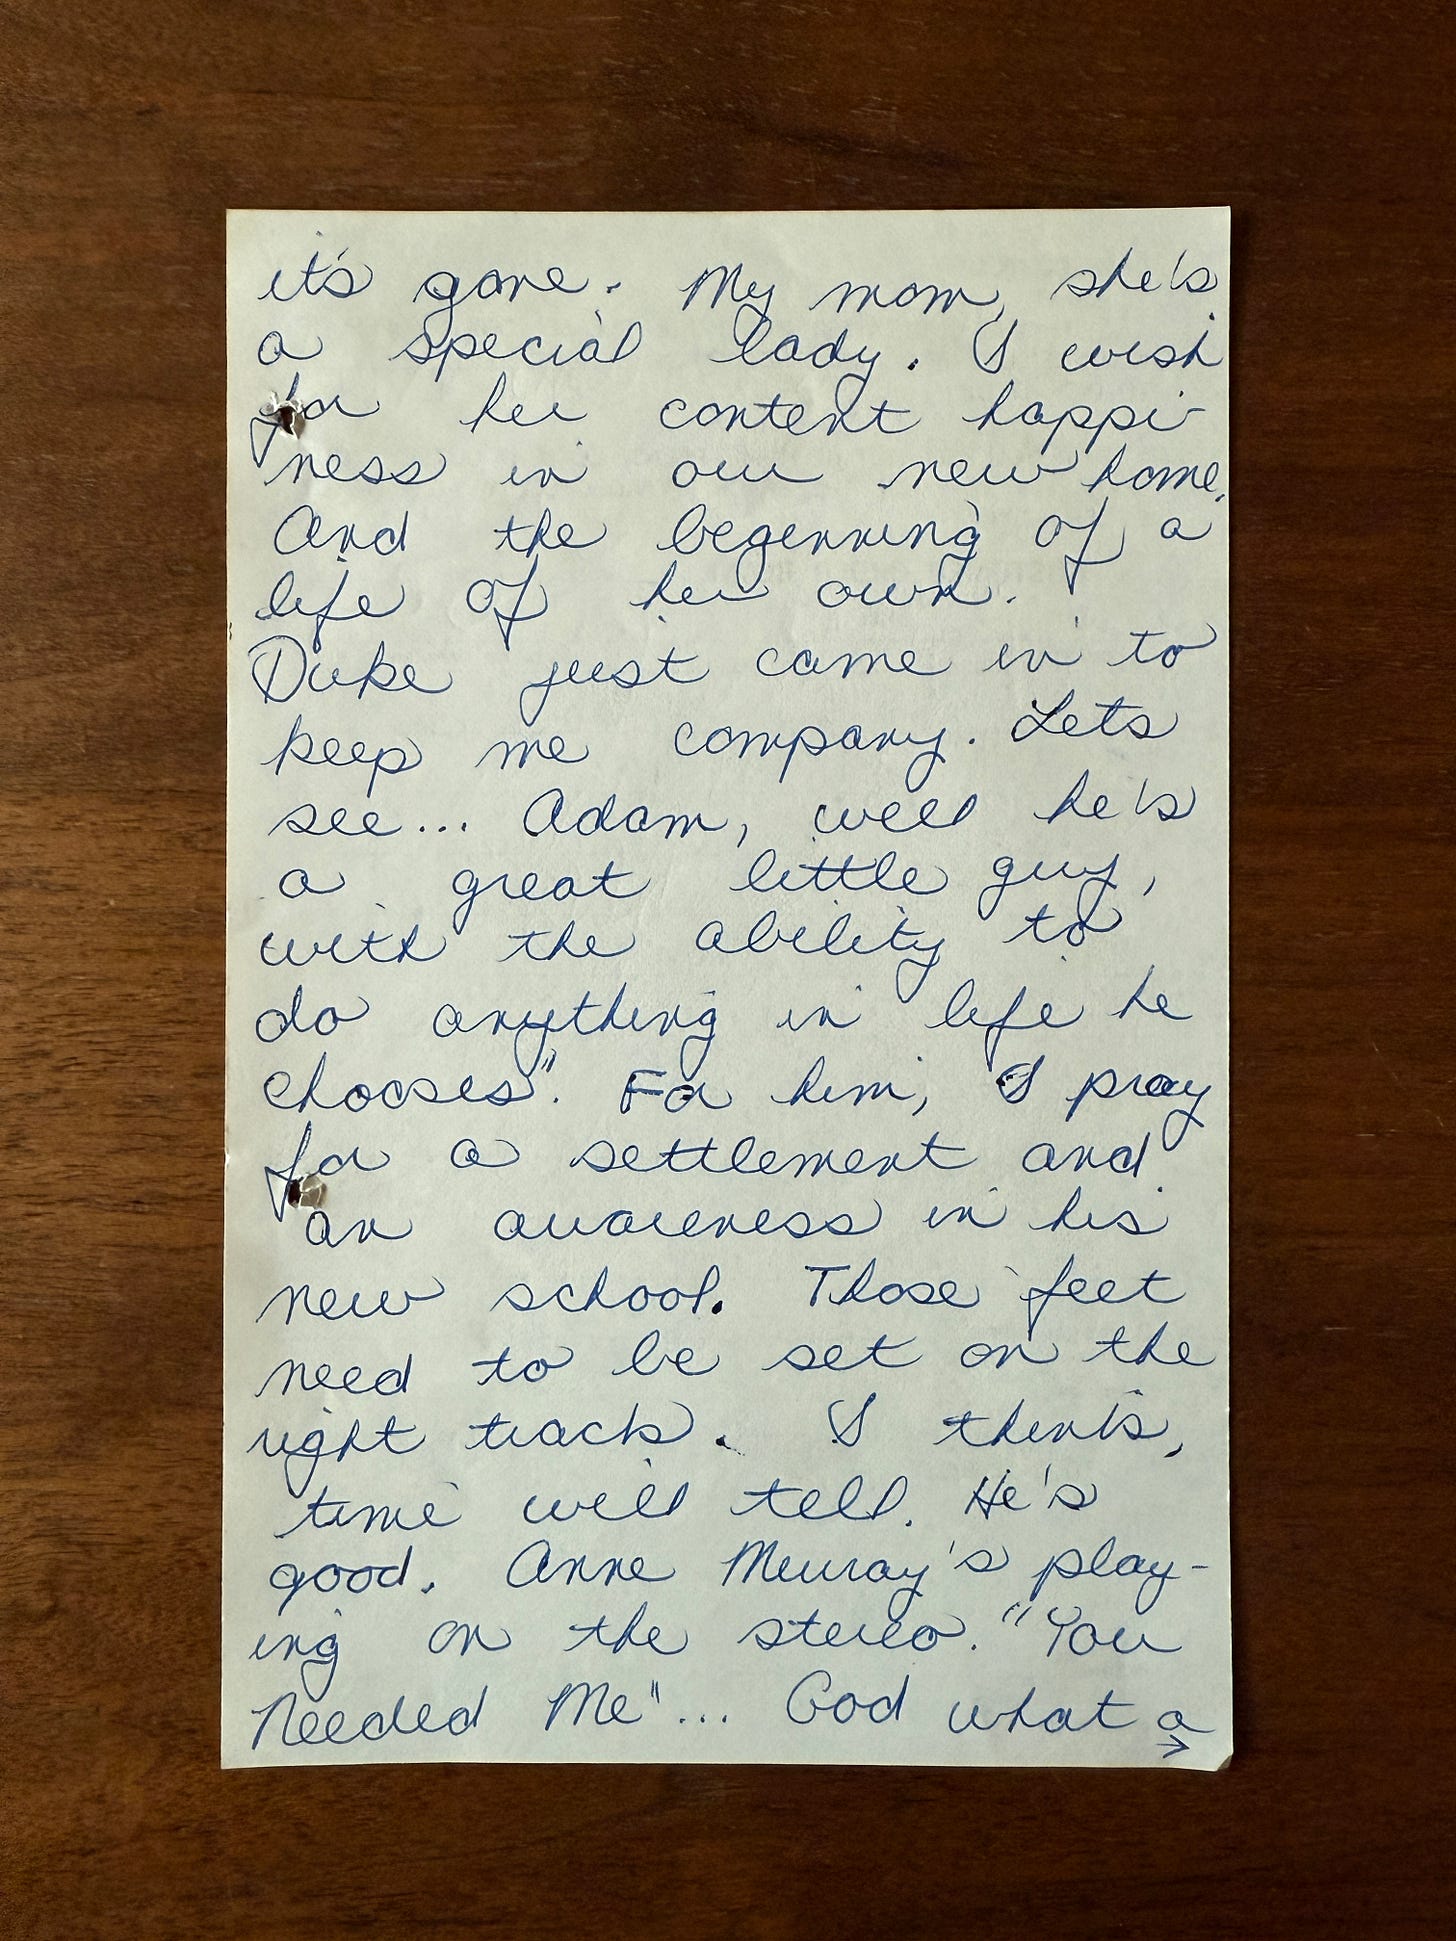 it's gone. My mom, she's
a special lady. I wish
for her content happi-
ness in our new home.
And the beginning of a
life of her own.
Duke just came in to
keep me company. Lets
see... Adam, well he's
a great little guy,
with the ability to
do anything in life he
chooses". For him, I pray
for a settlement and
an awareness in his
new school. Those feet
need to be set on the
right track. I think,
time will tell. He's
good. Anne Murray's play-
ing on the stereo. "You
Needed Me"... God what a
→